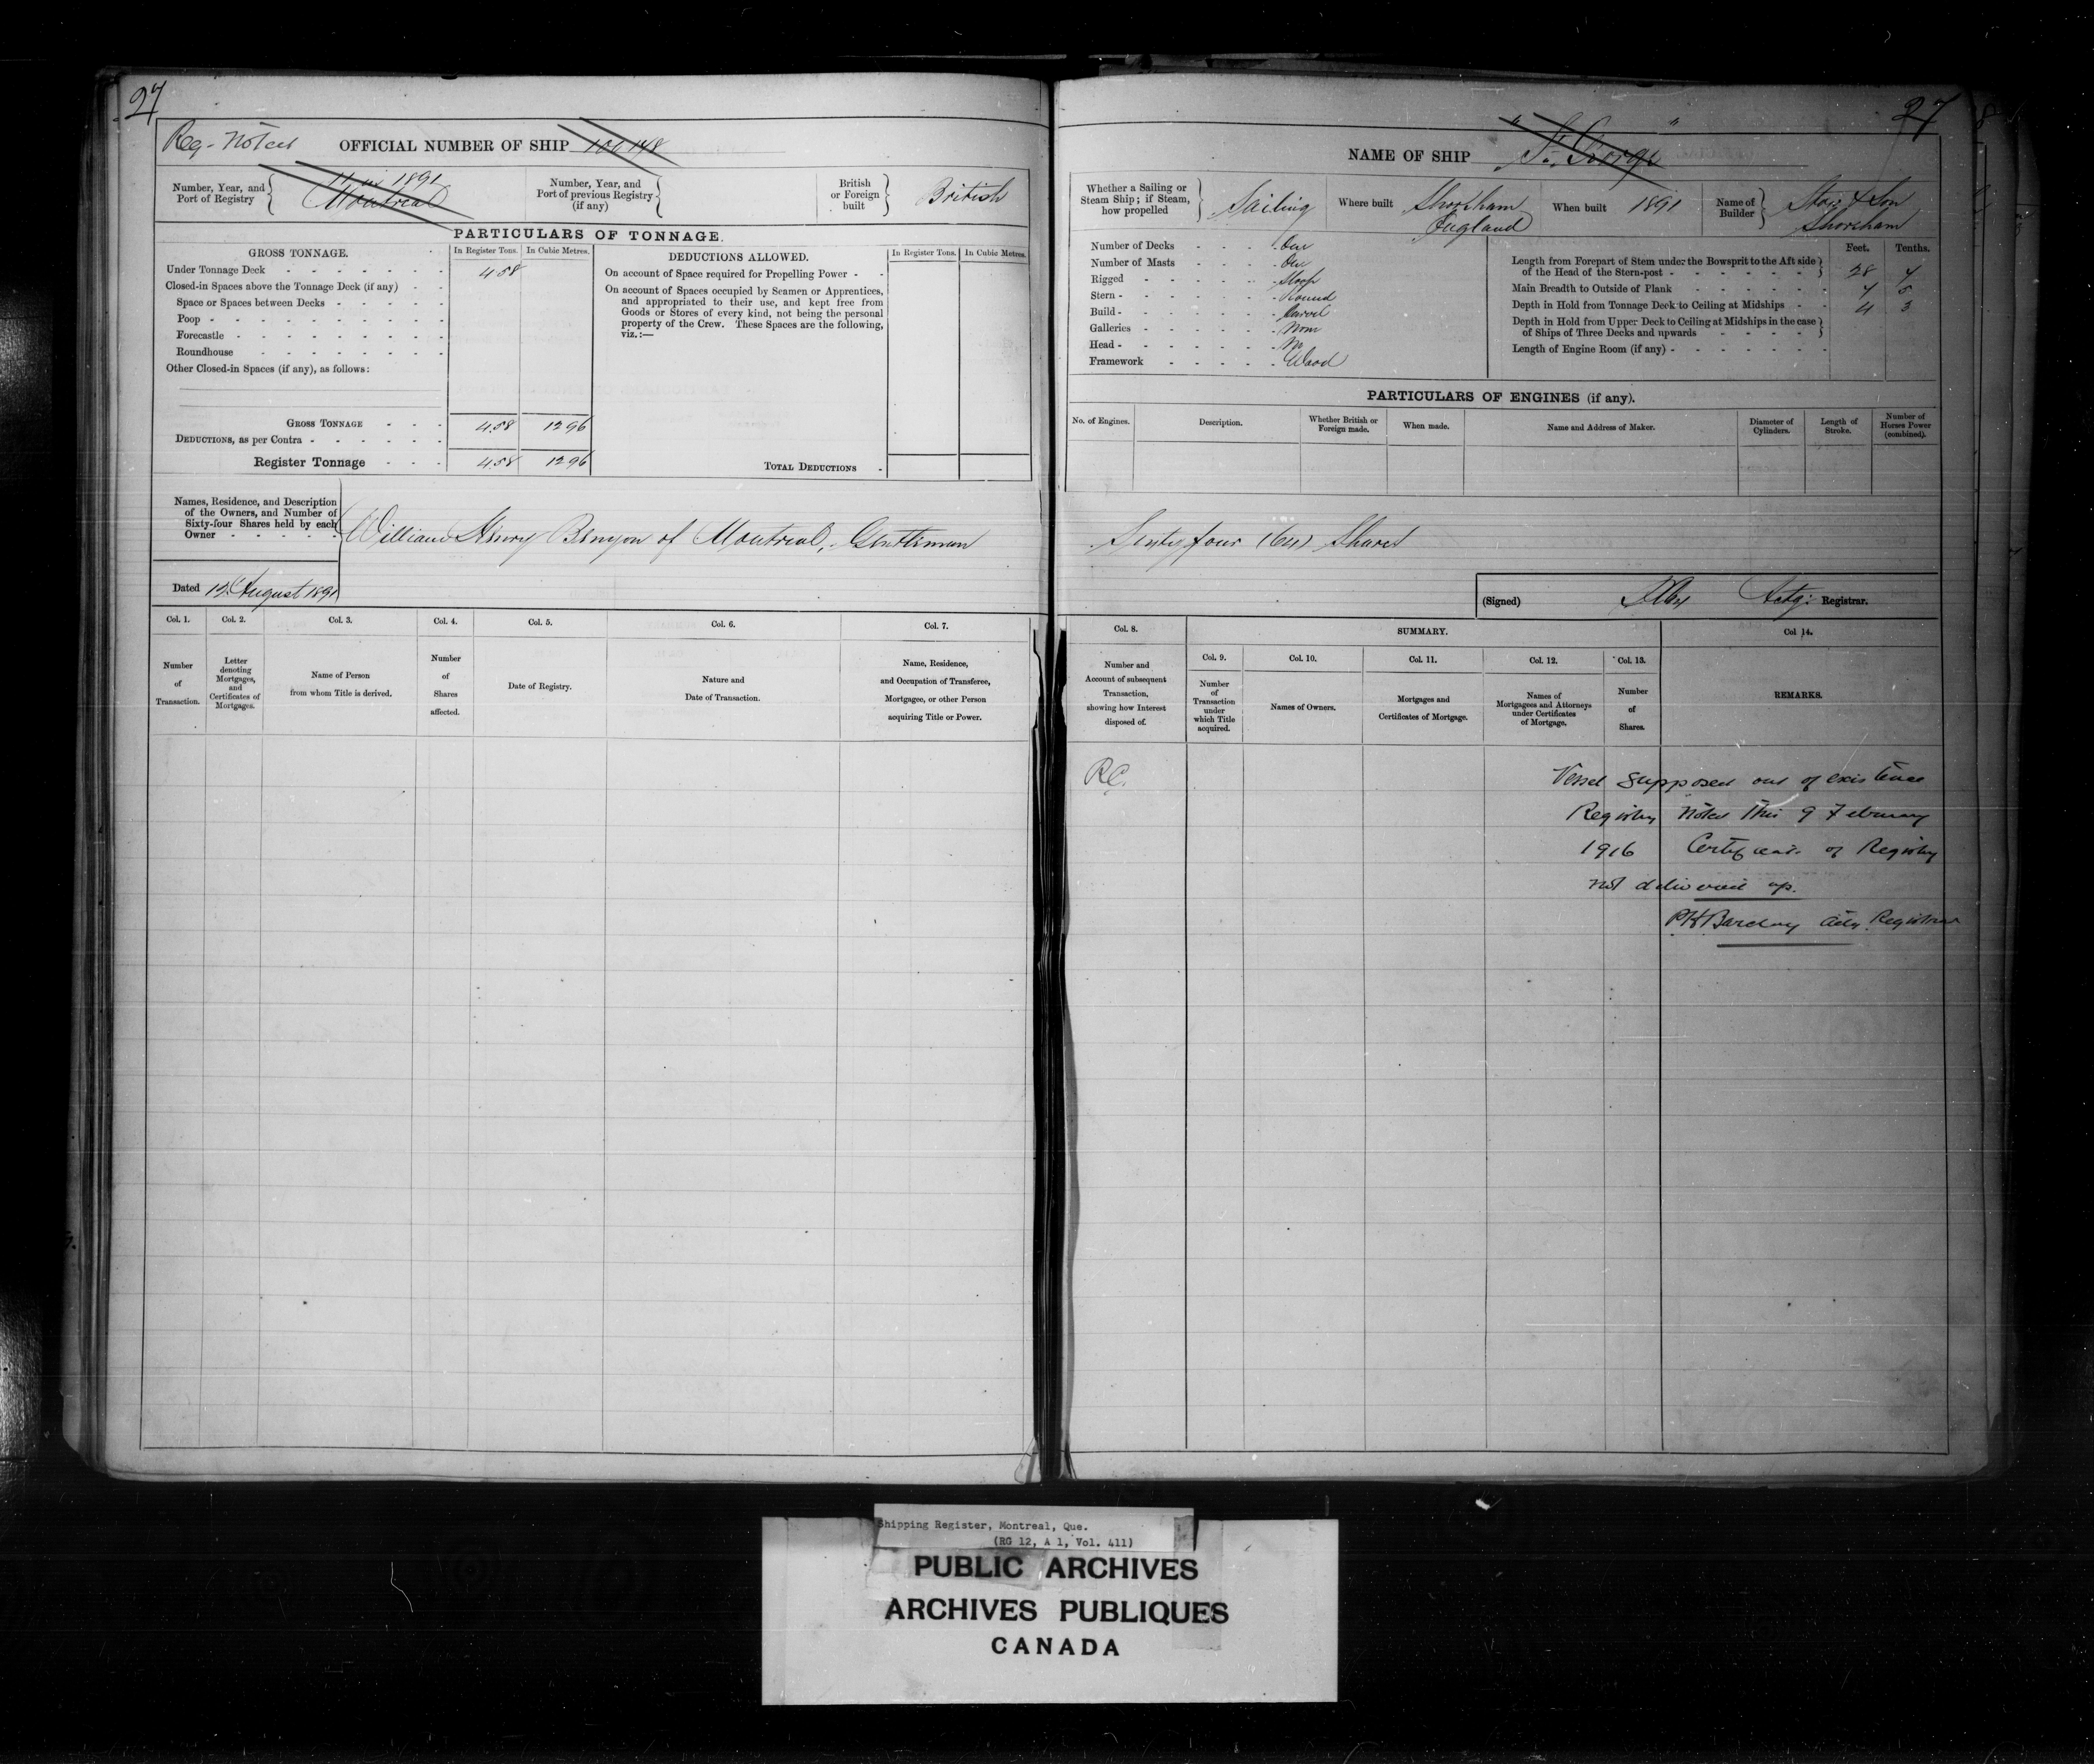 27
Reg. Noted
OFFICIAL NUMBER OF SHIP
Number, Year, and
Port of Registry
1891
Montreal
Number, Year, and
Port of previous Registry
(if any)
British
or Foreign
built
British
PARTICULARS OF TONNAGE.
GROSS TONNAGE.
In Register Tons.
In Cubic Metres.
Under Tonnage Deck
4.58
Closed-in Spaces above the Tonnage Deck (if any)
Space or Spaces between Decks
Poop
Forecastle
Roundhouse
Other Closed-in Spaces (if any), as follows:
GROSS TONNAGE 4.58 12 96
DEDUCTIONS, as per Contra
Register Tonnage 4.58 12 96
DEDUCTIONS ALLOWED.
In Register Tons.
In Cubic Metres.
On account of Space required for Propelling Power
On account of Spaces occupied by Seamen or Apprentices,
and appropriated to their use, and kept free from
Goods or Stores of every kind, not being the personal
property of the Crew. These Spaces are the following,
viz.:—
TOTAL DEDUCTIONS
Names, Residence, and Description
of the Owners, and Number of
Sixty-four Shares held by each
Owner
William Henry Benyon of Montreal, Gentleman
Dated 12 August 1891
Col. 1.
Number
of
Transaction.
Col. 2.
Letter
denoting
Mortgages,
and
Certificates of
Mortgages.
Col. 3.
Name of Person
from whom Title is derived.
Col. 4.
Number
of
Shares
affected.
Col. 5.
Date of Registry.
Col. 6.
Nature and
Date of Transaction.
Col. 7.
Name, Residence,
and Occupation of Transferee,
Mortgagee, or other Person
acquiring Title or Power.
27
NAME OF SHIP "St. George"
Whether a Sailing or
Steam Ship; if Steam,
how propelled
Sailing
Where built
Shoreham
England
When built 1891
Name of
Builder
& Son
Shoreham
Number of Decks One
Number of Masts One
Rigged Sloop
Stern Round
Build Carvel
Galleries None
Head No
Framework Wood
Feet. Tenths.
Length from Forepart of Stem under the Bowsprit to the Aft side
of the Head of the Stern-post 28 4
Main Breadth to Outside of Plank 7 5
Depth in Hold from Tonnage Deck to Ceiling at Midships 4 3
Depth in Hold from Upper Deck to Ceiling at Midships in the case
of Ships of Three Decks and upwards
Length of Engine Room (if any)
PARTICULARS OF ENGINES (if any).
No. of Engines.
Description.
Whether British or
Foreign made.
When made.
Name and Address of Maker.
Diameter of
Cylinders.
Length of
Stroke.
Number of
Horses Power
(combined).
Sixty four (64) Shares
(Signed) Actg. Registrar.
Col. 8.
Number and
Account of subsequent
Transaction,
showing how Interest
disposed of.
SUMMARY.
Col. 9.
Number
of
Transaction
under
which Title
acquired.
Col. 10.
Names of Owners.
Col. 11.
Mortgages and
Certificates of Mortgage.
Col. 12.
Names of
Mortgagees and Attorneys
under Certificates
of Mortgage.
Col. 13.
Number
of
Shares.
Col 14.
REMARKS.
R.C.
Vessel supposed out of existence
Registry Noted This 9 February
1916 Certificate of Registry
not delivered up.
PH Barclay Actg. Registrar
Shipping Register, Montreal, Que.
(RG 12, A 1, Vol. 411)
PUBLIC ARCHIVES
ARCHIVES PUBLIQUES
CANADA